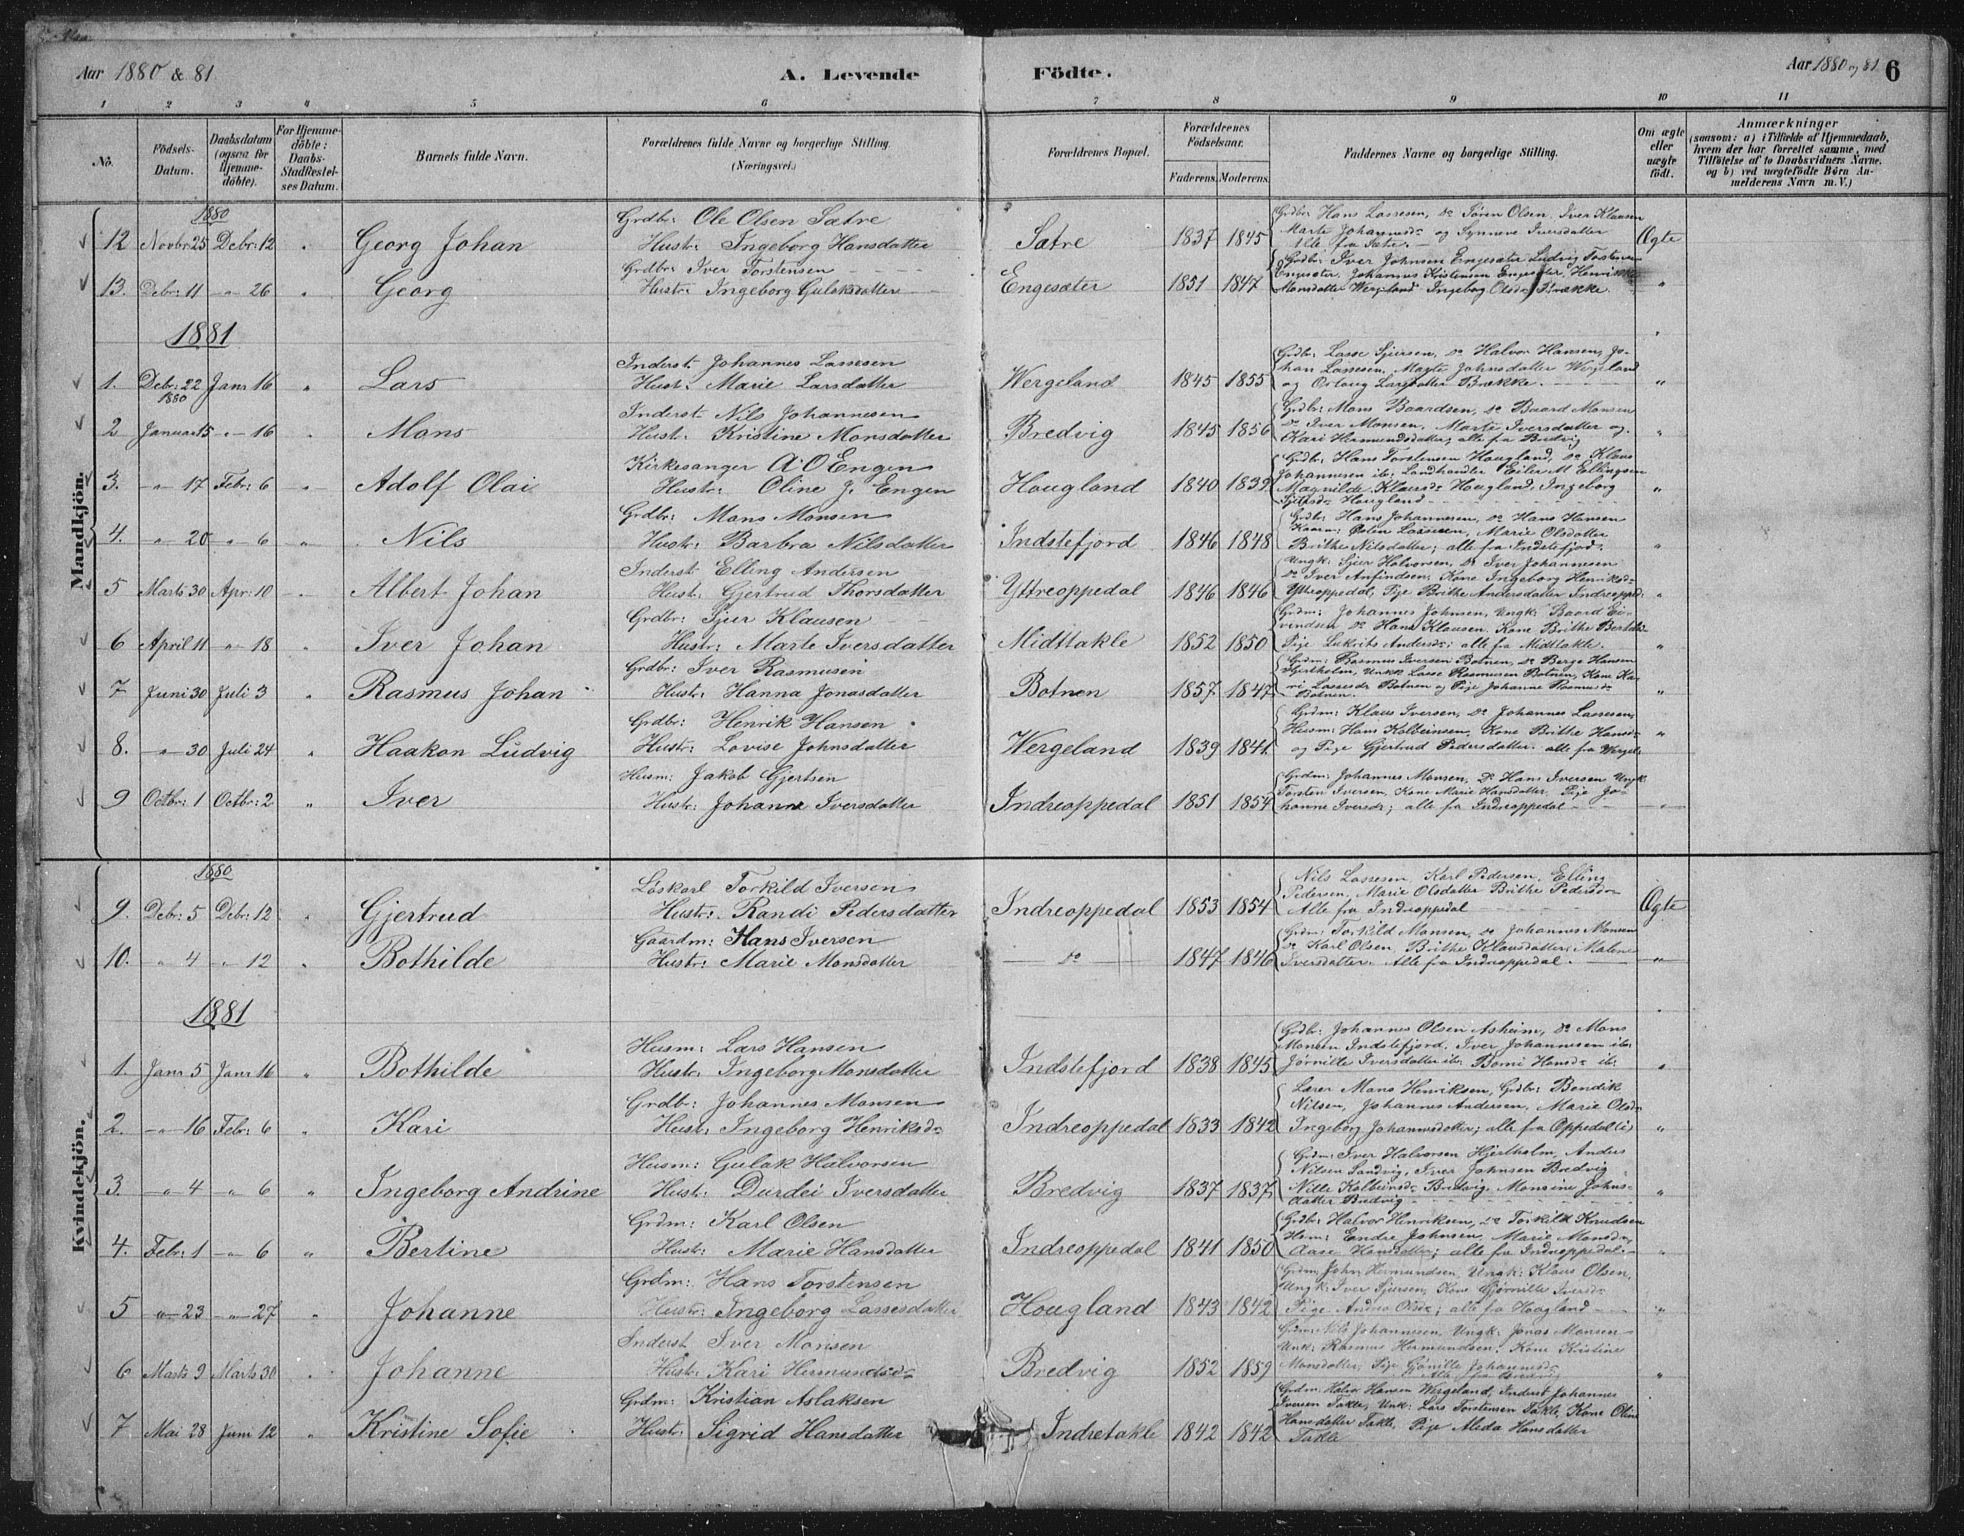 Aar 1880 & 81. A. Levende Födte. Aar 1880 og 81. 6
1 2 3 4 5 6 7 8 9 10 11
No. Födsels-Datum. Daabsdatum (ogsaa for Hjemmedöbte). For Hjemmedöbte: Daabs-Stadfæstelses Datum. Barnets fulde Navn. Forældrenes fulde Navne og borgerlige Stilling. (Næringsvei.) Forældrenes Bopæl. Forældrenes Födselsaar. Faderens. Moderens. Faddernes Navne og borgerlige Stilling. Om ægte eller uægte födt. Anmærkninger (saasom: a) i Tilfælde af Hjemmedaab, hvem der har forrettet samme, med Tilföielse af to Daabsvidners Navne. og b) ved uægtefödte Börn Anmelderens Navn m. V.)
Mandkjön.
1880
12 Novbr: 25 Debr: 12 " Georg Johan Grdbr: Ole Olsen Sætre
Hustr: Ingeborg Hansdatter Sætre 1837 1845 Grdbr Hans Lassesen, do Sören Olsen, Iver Klausen
Marte Johannesd: og Synneve Iversdatter
Alle fra Sætre. Ægte
13. Debr: 11 " 26 " Georg Grdbr: Iver Torstensen
Hustr: Ingeborg Gulaksdatter Engesæter 1851 1847 Grdbr: Iver Johnsen Engesæter Ludvig Torstensen
Engesæter, Johannes Kristensen Engesæter, Henrikke
Monsdatter Wergeland Ingeborg Olsd: Brække. "
1881
1. Debr: 22 1880 Janr 16 " Lars Inderst Johannes Lassesen
Hust: Marie Larsdatter Wergeland 1845 1855 Grdbr: Lasse Sjursen, do Halvor Hansen, Jo-
han Lassesen, Marte Johnsdatter Wergeland
og Orlaug Larsdatter Brække. "
2 Januar 15 " 16 " Mons Inderst Nils Johannesen
Hust: Kristine Monsdatter Bredvig 1845 1856 Grdbr: Mons Baardsen, do Baard Monsen
do Iver Monsen, Marte Iversdatter og
Kari Hermundsdatter; alle fra Bredvig "
3. " 17 Febr: 6 " Adolf Olai Kirkesanger A O Engen
Hustr: Oline J. Engen Hougland 1840 1839 Grdbr: Hans Torstensen Hougland, do Klaus
Johannesen ib: Landhandler Eiler M Ellingsen
Magnilde Klausd: Hougland, Ingeborg
Hougland "
4. " 20 " 6 " Nils Grdbr: Mons Monsen
Hustr: Barbra Nilsdatter Indstefjord 1846 1848 Grdbr: Hans Johannesen, do Hans Hansen
Østen Lassesen, Marie Olsdatter
Brithe Nilsdatter; alle fra Indstefjord. "
5 Marts 30 Apr: 10 " Albert Johan Inderst Elling Andersen
Hust: Gjertrud Thorsdatter Yttreoppedal 1846 1846 Ungk: Sjur Halvorsen, do Iver Johannesen
do Iver Anfindsen, Kone Ingeborg Henriksd:
Yttreoppedal, Pige Brithe Andersdatter Indreopped: "
6 April 11 " 18 " Iver Johan Grdbr: Sjur Klausen
Hustr: Marte Iversdatter Midttakle 1852 1850 Grdm: Johannes Johnsen, Ungk: Baard Ei-
vendsen do Hans Klausen, Kone Brithe Bertels
Pige Andersd: alle fra Midttakle. "
7 Juni 30 Juli 3 " Rasmus Johan Grdbr: Iver Rasmusen
Hust: Hanna Jonasdatter Botnen 1857 1847 Grdm: Rasmus Iversen Botnen, do Berge Hansen
Hjertholm, Unkk Lasse Rasmusen Botnen, Kone Ka-
ri Lassesdr Botnen og Pige Johanne Rasmusd:
Botnen. "
8. " 30 Juli 24 " Haakon Ludvig Grdbr: Henrik Hansen
Hust: Lovise Johnsdatter Wergeland 1839 1841 Grdm: Klaus Iversen, do Johannes Lassesen,
Husm: Hans Kolbeinsen, Kone Brithe Hansd:
og Pige Gjertrud Pedersdatter. alle fra Wergel: "
9 Octbr: 1 Octbr: 2 " Iver Husm: Jakob Gjertsen
Hustr: Johanne Iversdatter Indreoppedal 1851 1854 Grdm: Johannes Monsen, do Hans Iversen Ungk
Torsten Iversen, Kone Marie Hansdatter, Pige Jo-
hanne Iversdr; alle fra Indreoppedal "
Kvindekjön.
1880
9. Debr: 5 Debr: 12 " Gjertrud Löskarl Torkild Iversen
Hustr: Randi Pedersdatter Indreoppedal 1853 1854 Nils Lassesen, Karl Pedersen, Elling
Pedersen, Marie Olsdatter Brithe Pedersd:
Alle fra Indreoppedal Ægte
10. " 4 " 12 " Bothilde Gaardm: Hans Iversen
Hustr: Marie Monsdatter do 1847 1846 Grdm: Torkild Monsen, do Johannes Monsen
do Karl Olsen, Brithe Klausdatter, Malene
Iversdatter. Alle fra Indreoppedal. "
1881
1. Janr 5 Janr 16 " Bothilde Husm: Lars Hansen
Hustr: Ingeborg Monsdatter Indstefjord 1838 1845 Grdbr: Johannes Olsen Asheim, do Mons
Monsen Indstefjord, Iver Johannesen ib:
Jörnille Iversdatter ib: Bomi Hansd: ib: "
2. " 16 Febr: 6 " Kari Grdbr: Johannes Monsen
Hust: Ingeborg Henriksd: Indreoppedal 1833 1842 Lærer Mons Henriksen, Grdbr: Bendik
Nilsen, Johannes Andersen, Marie Olsdr
Ingeborg Johannesdatter; alle fra Oppedal (i) "
3. " 4 " 6 " Ingeborg Andrine Husm: Gulak Halvorsen
Hust: Durdei Iversdatter Bredvig 1837 1837 Grdm: Iver Halvorsen Hjertholm, Anders
Nilsen Sandvig, Iver Johnsen Bredvig
Nille Kolbeinsd: Bredvig, Monsine Johns-
datter Bredvig "
4. Febr: 1 " 6 " Bertine Grdm: Karl Olsen
Hust: Marie Hansdatter Indreoppedal 1841 1850 Grdbr: Halvor Henriksen, do Torkild Knudsen
Hsm: Endre Johnsen, Marie Monsdr,
Aase Hansdatter; alle fra Indreoppedal. "
5 " 23 " 27 " Johanne Grdm: Hans Torstensen
Hustr: Ingeborg Lassesdatter Hougland 1843 1842 Grdm: John Hermundsen, Ungk: Klaus Olsen,
Ungk: Iver Sjursen, Kone Gjörnille Iversd:
Pige Andrea Olsdr; alle fra Hougland "
6 Marts 9 Marts 30 " Johanne Inderst Iver Monsen
Hust: Kari Hermundsd: Bredvig 1852 1859 Grdm: Nils Johannesen, Ungk: Jonas Monsen
Unk: Rasmus Hermundsen, Kone Kristine
Monsdatter, Pige Gjönille Johannesd:
Alle fra Bredvig "
7 Mai 28 Juni 12 " Kristine Sofie Grdm: Kristian Aslaksen
Hust: Sigrid Hansdatter Indretakle 1842 1842 Grdm: Halvor Hansen Wergeland, Inderst Johannes
Iversen Takle, Unk: Lars Torstensen Takle, Kone Oline
Hansdatter Takle, Pige Aleda Hansdatter
Takle